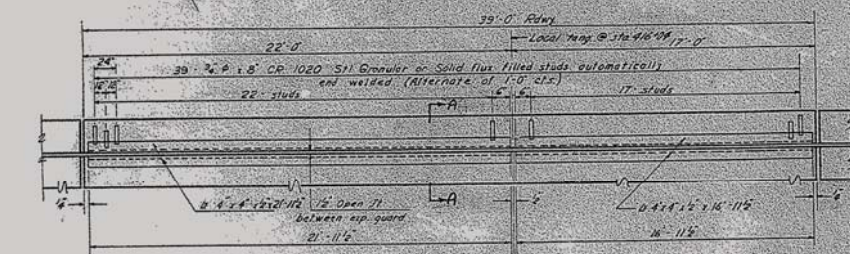 39'-0" Rdwy.
Local tang. @ sta 416+04
22'-0"
17'-0"
24"
39 - ¾" φ x 8" CR 1020 Stl. Granular or Solid flux filled studs automatically
end welded (Alternate at 1'-0" cts.)
12" 12"
22 - studs
6" 6"
17 - studs
A
A
¼"
4" x 4" x ½" x 21'-11½"
1½" Open Jt.
between exp. guard
½"
4" x 4" x ½" x 16'-11½"
¼"
21'-11½"
16'-11½"